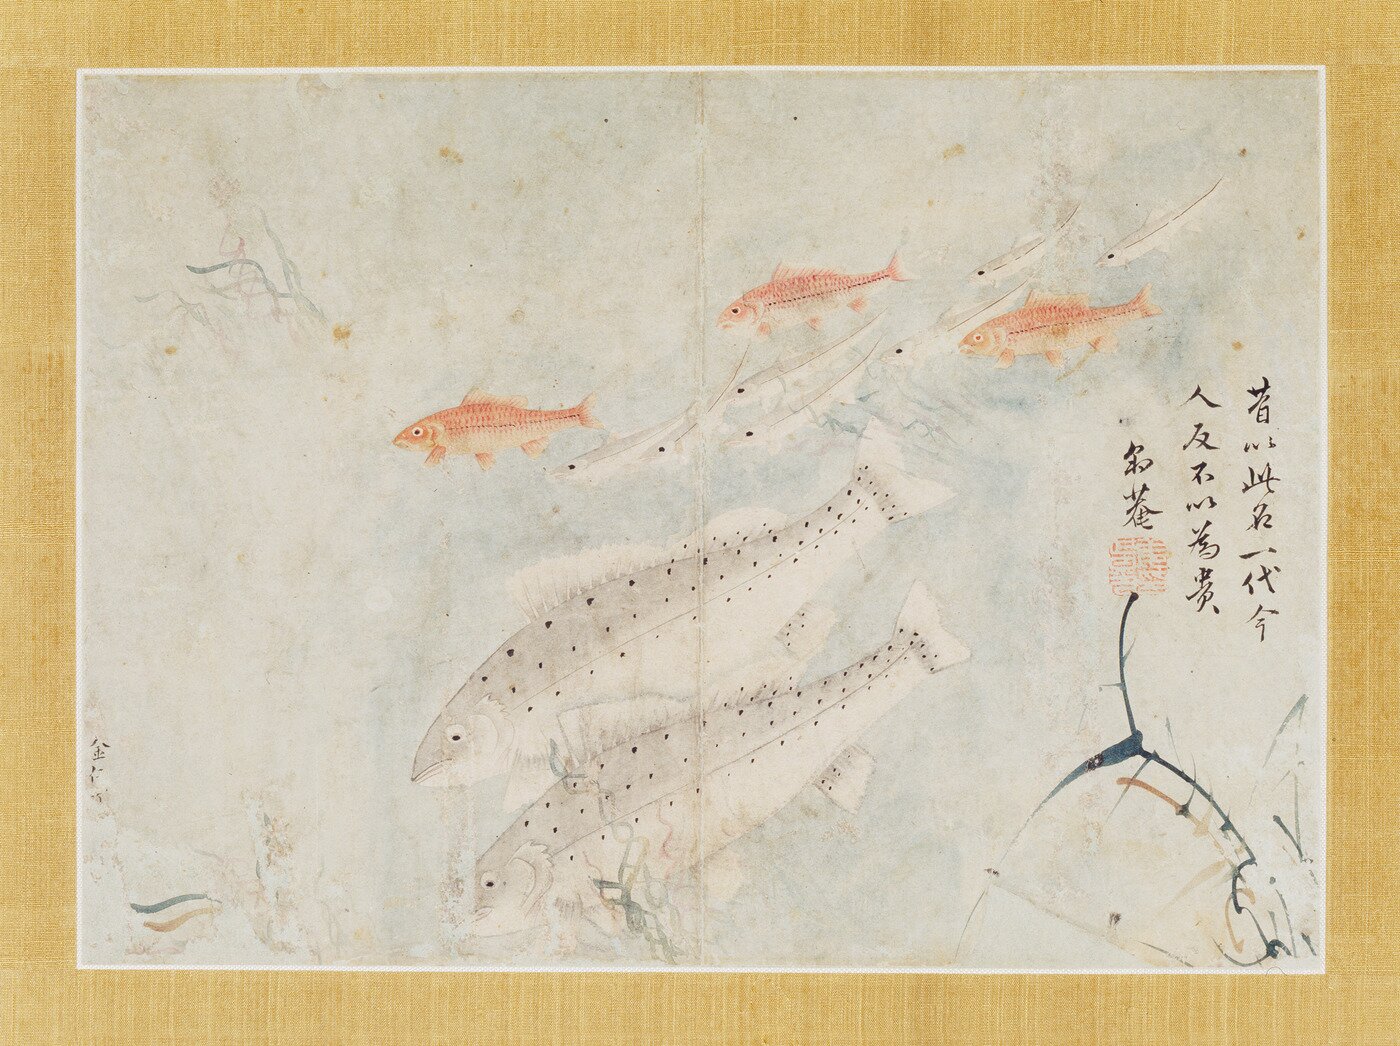 昔以此名一代今
人反不以為貴
豹菴
金仁